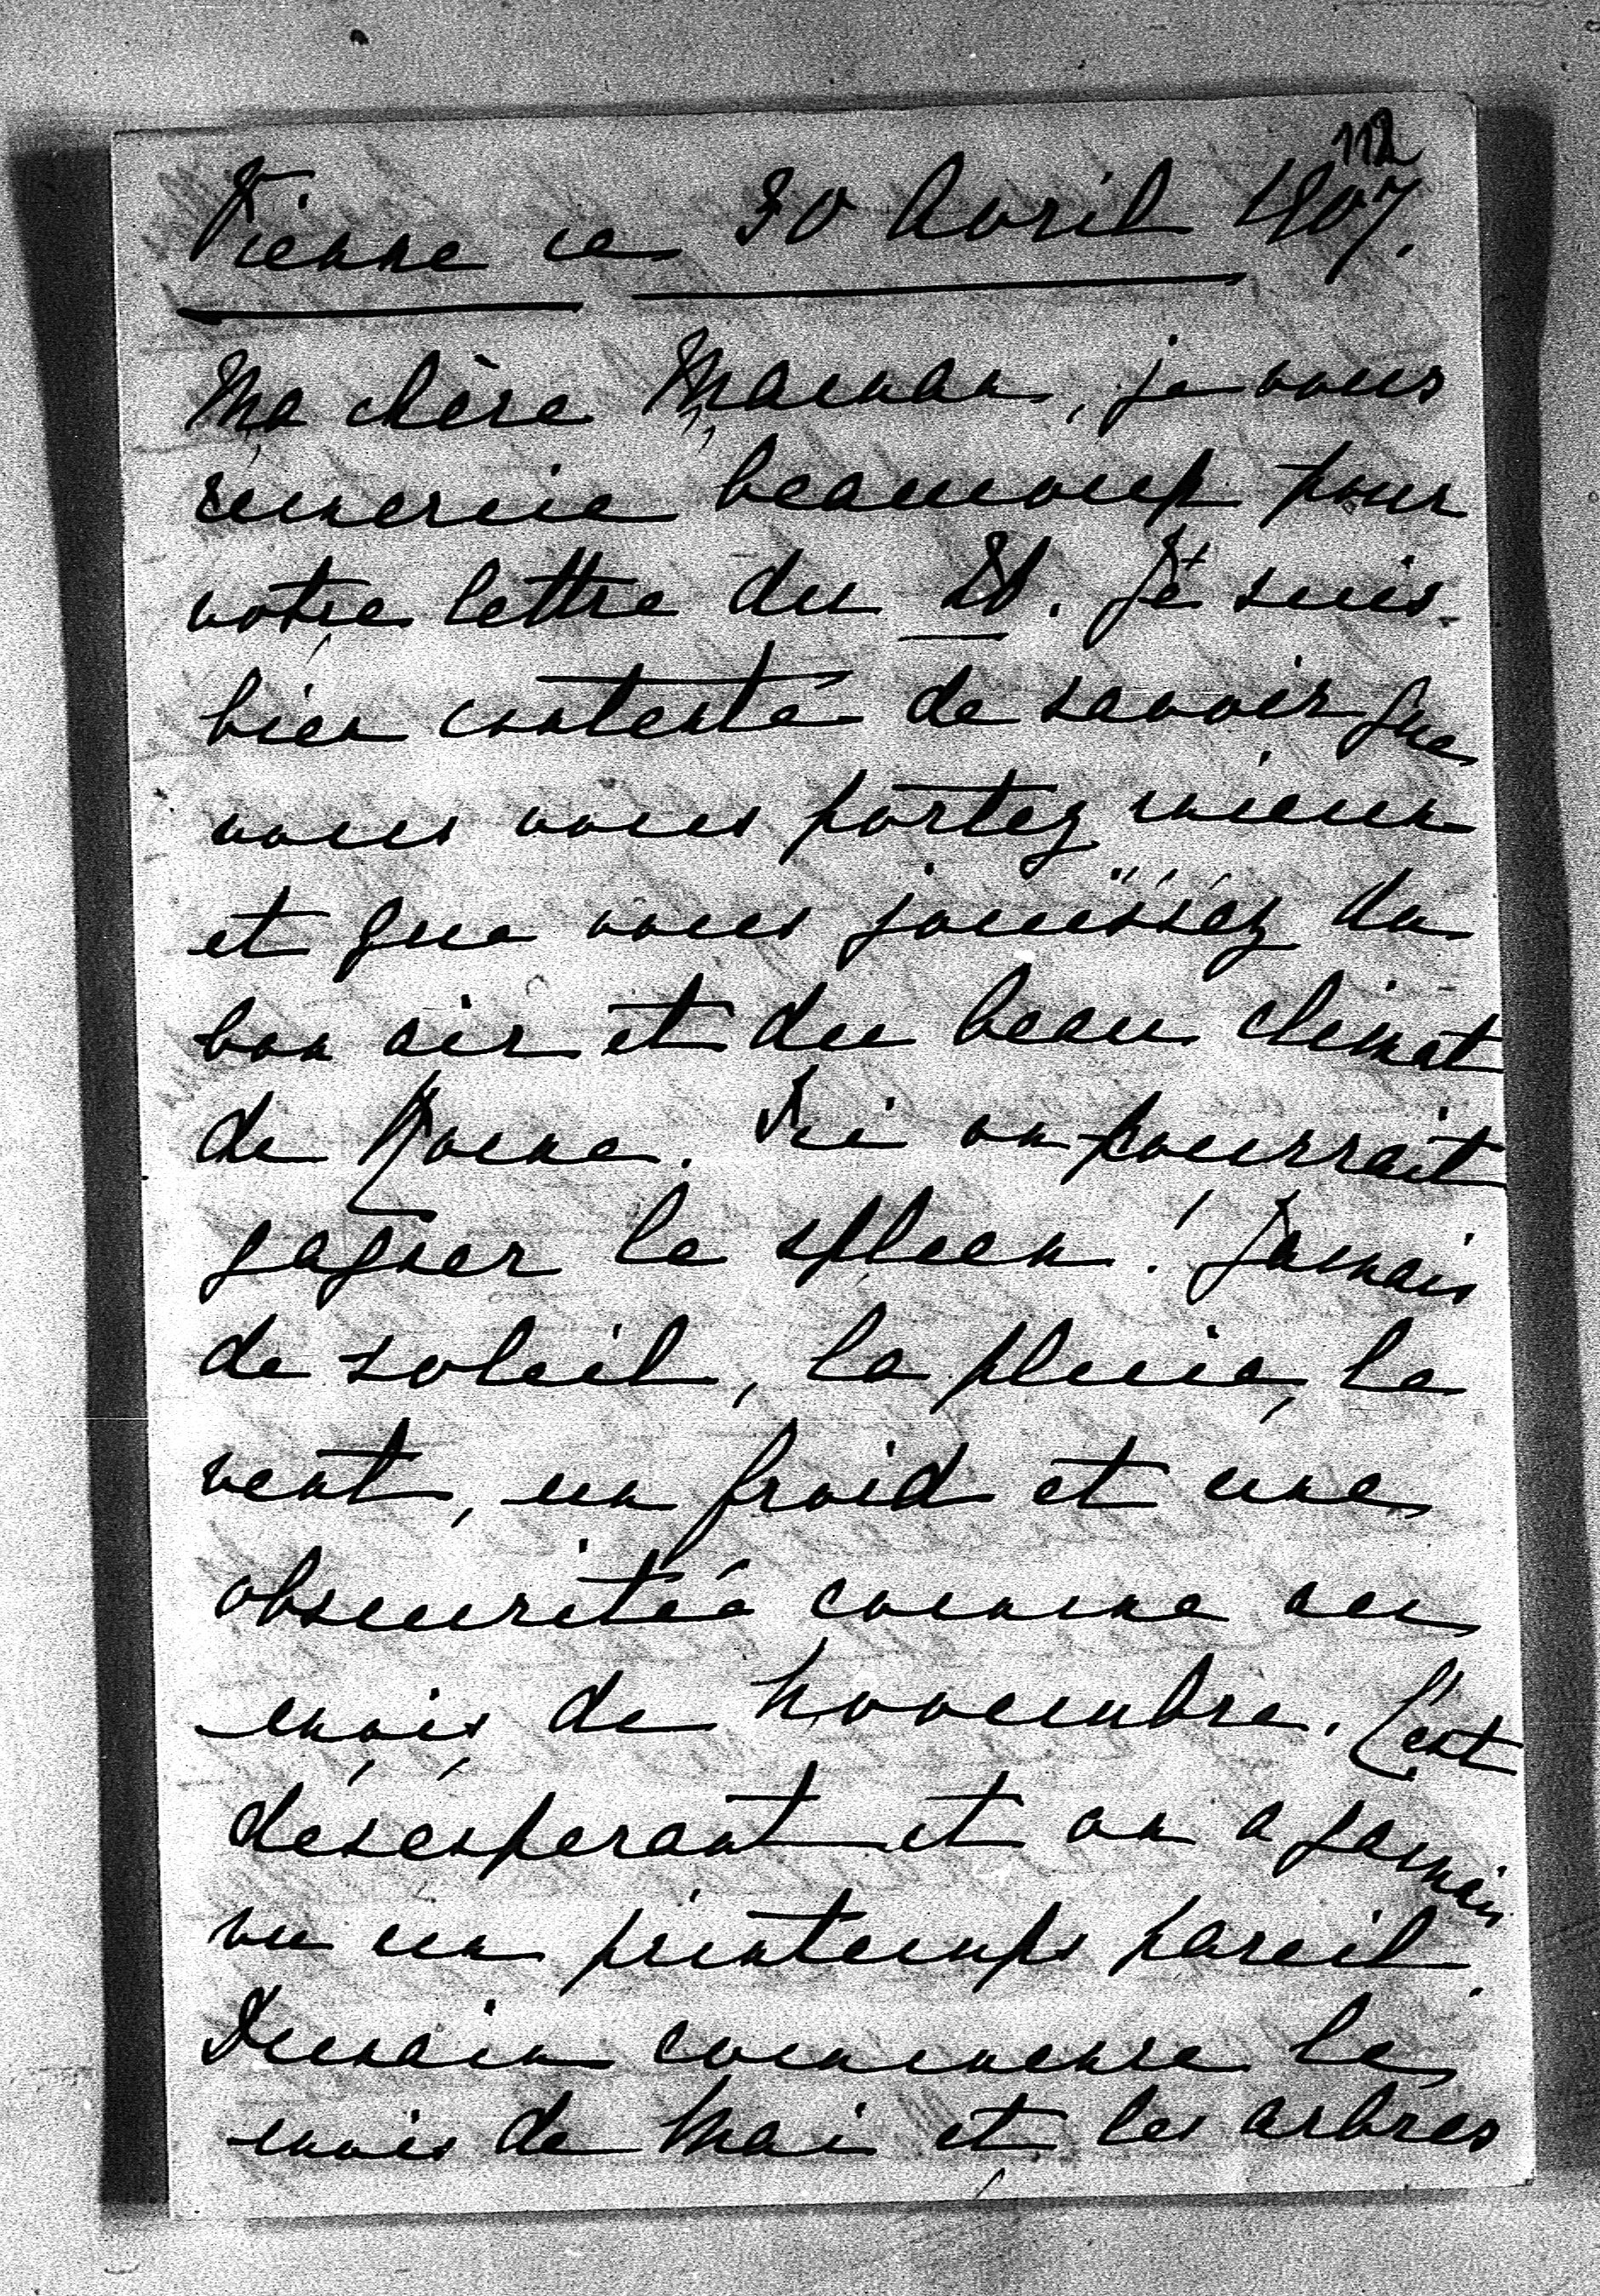 112
Vienne ce 30 Avril 1907.
Ma chère Maman, je vous
remercie beaucoup pour
votre lettre du Je suis
bien contente de savoir que
vous vous portez mieux
et que vous jouissez du
bon air et du beau climat
de Rome. Ici on pourrait
gagner le spleen! Jamais
de soleil, la pluie, le
vent, un froid et une
obscuritée comme au
mois de Novembre. C'est
désésperant et on a jamais
vu un printemps pareil.
Demain commence le
mois de Mai et les arbres